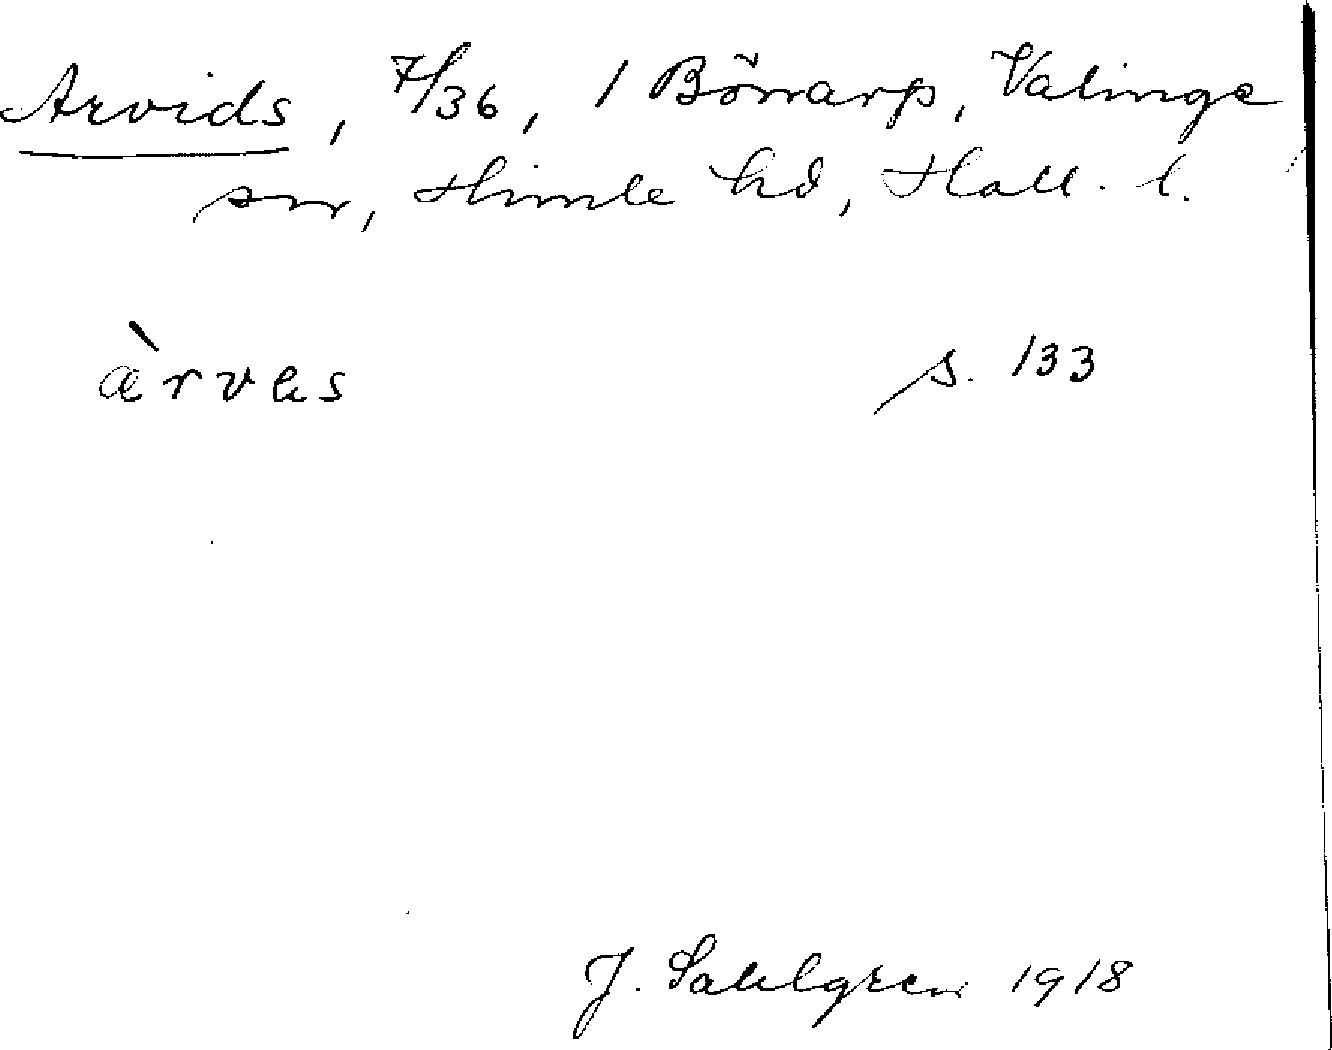 Arvids, 7/36, 1 Börrarp, Valinge
sn, Himle hd, Hall. l.
àrvas s. 133
J. Sahlgren 1918